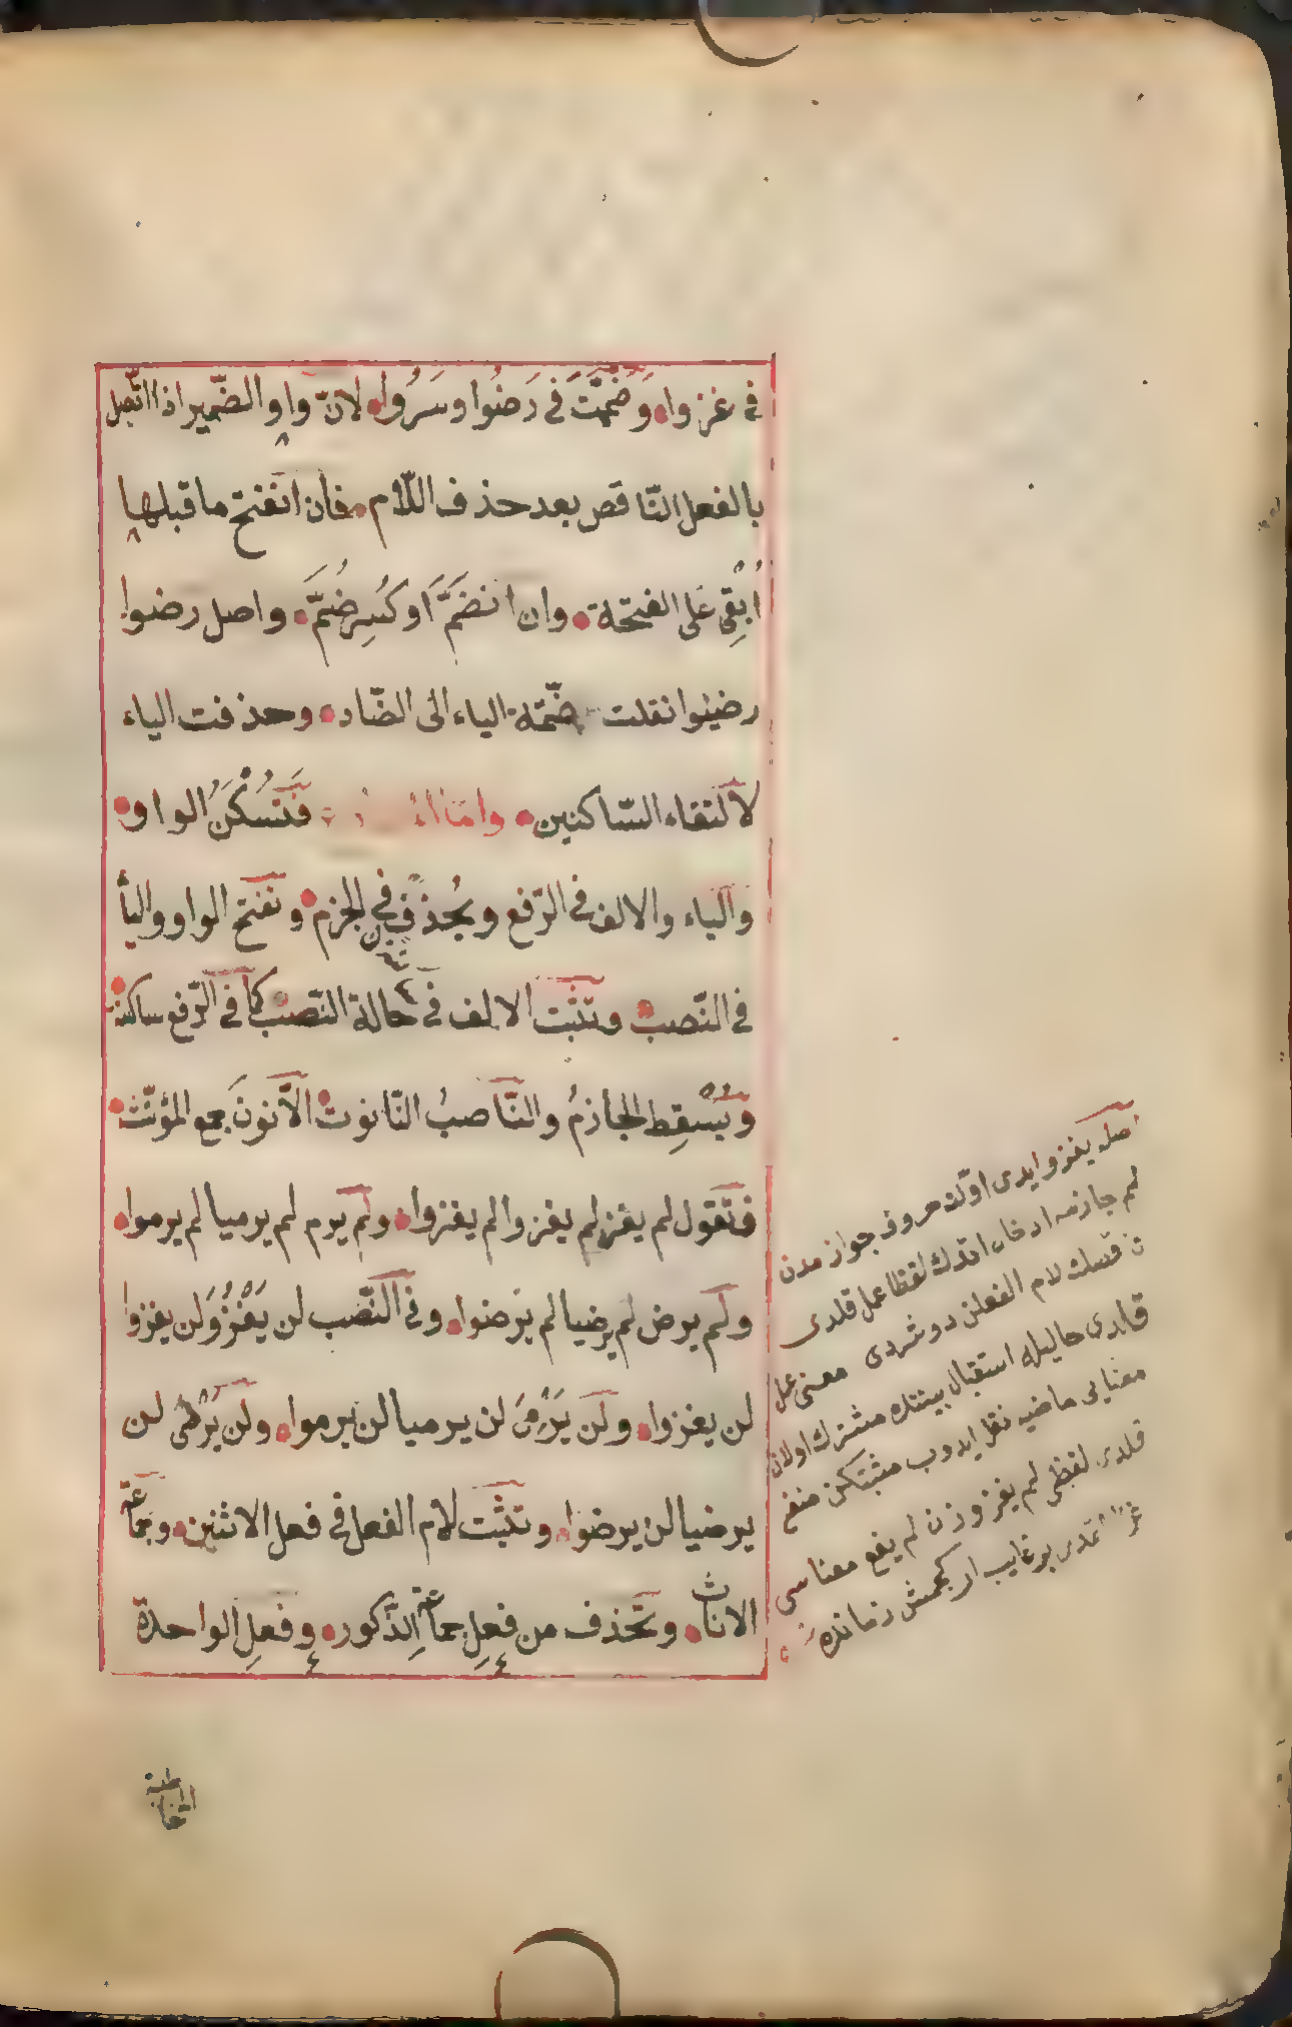 في غزوا وَضُمَّتْ في رَضُوا وسَرُوا لانّ واو الضّمير اذا اتّصل
بالفعل النّاقص بعد حذف اللّام فان انفتح ما قبلها
اُبْقِىَ على الفتحة وان انضَمَّ او كُسِرَ ضُمَّ واصل رضوا
رضيُوا نقلت ضمّة الياء الى الضّاد وحذفت الياء
لالتقاء السّاكنين وامّا فَتَسْكُنُ الواو
والياء والالف في الرّفع ويُحذفن في الجزم وتفتح الواو والياء
في النّصب وتثبت الالف في حالة النّصب كما في الرّفع ساكنة
وَيُسْقِط الجازمُ والنّاصبُ النّونات الّا نونَ جمع المؤنّث
فتقول لم يغز لم يغزوا لم يغزوا ولم يرم لم يرميا لم يرموا
ولم يرض لم يرضيا لم يرضوا وفي النّصب لن يَغْزُوَ لن يغزوا
لن يغزوا ولن يَرْمِىَ لن يرميا لن يرموا ولن يَرْضى لن
يرضيا لن يرضوا وتثبت لام الفعل في فعل الاثنين وجماعة
الاناث وتحذف من فِعلِ جماعة الذّكور وفعلِ الواحدة
المخاطبة
اصله يغزو ايدى اوّلنه حروف جوازمدن
لم جازمه ادخال اتدك لفظا عمل قلدى
ناقصك لام الفعلن دوشردى معنى عمل
قلدى حاليله استقبال بيننده مشترك اولان
معنايى ماضيه نقل ايدوب مثبتكن منفى
قلدى لفظى لم يغز وزن لم يفع معناسى
غزا اتمدى بر غايب ار كچمش زمانده